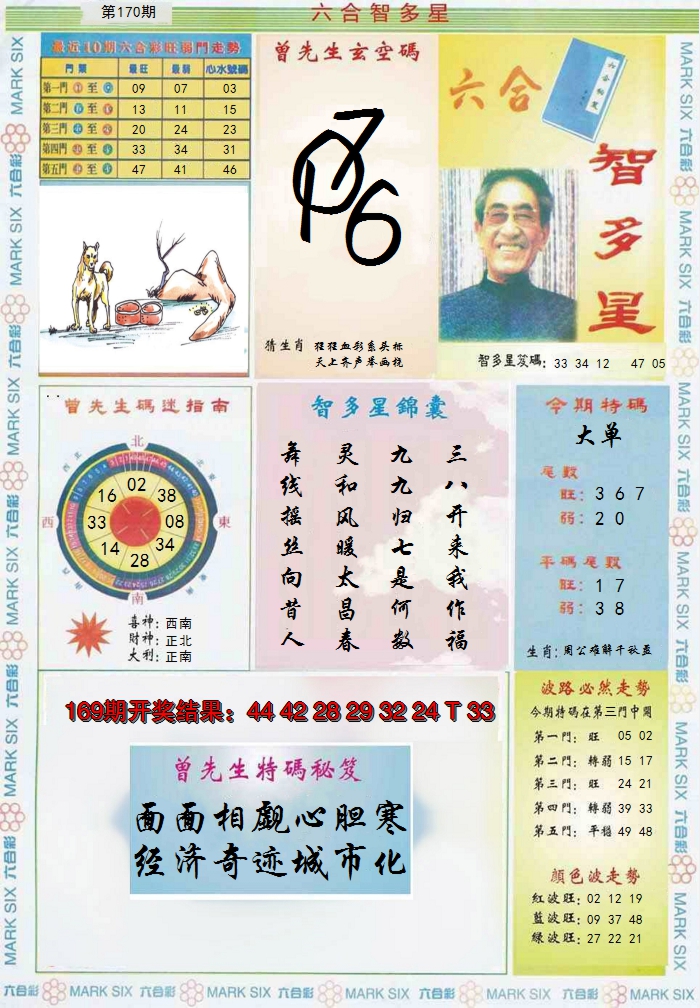 第170期
六合智多星
最近10期六合彩旺弱門走勢
門類 最旺 最弱 心水號碼
第一門 至 09 07 03
第二門 至 13 11 15
第三門 至 20 24 23
第四門 至 33 34 31
第五門 至 47 41 46
曾先生玄空碼
猜生肖 猩猩血彩系头标
天上齐声举画桡
六合
智多星
智多星笈碼: 33 34 12 47 05
曾先生碼迷指南
北
西
東
南
02
38
08
34
28
14
33
16
喜神: 西南
財神: 正北
大利: 正南
智多星錦囊
三八开来我作福
九九归七是何数
灵和风暖太昌春
舞线摇丝向昔人
今期特碼
大单
尾數
旺: 3 6 7
弱: 2 0
平碼尾數
旺: 1 7
弱: 3 8
生肖: 周公难解千秋蓝
169期开奖结果: 44 42 28 29 32 24 T 33
曾先生特碼秘笈
面面相觑心胆寒
经济奇迹城市化
波路必然走勢
今期特碼在第三門中開
第一門: 旺 05 02
第二門: 轉弱 15 17
第三門: 旺 24 21
第四門: 轉弱 39 33
第五門: 平穩 49 48
顔色波走勢
紅波旺: 02 12 19
藍波旺: 09 37 48
綠波旺: 27 22 21
MARK SIX 六合彩